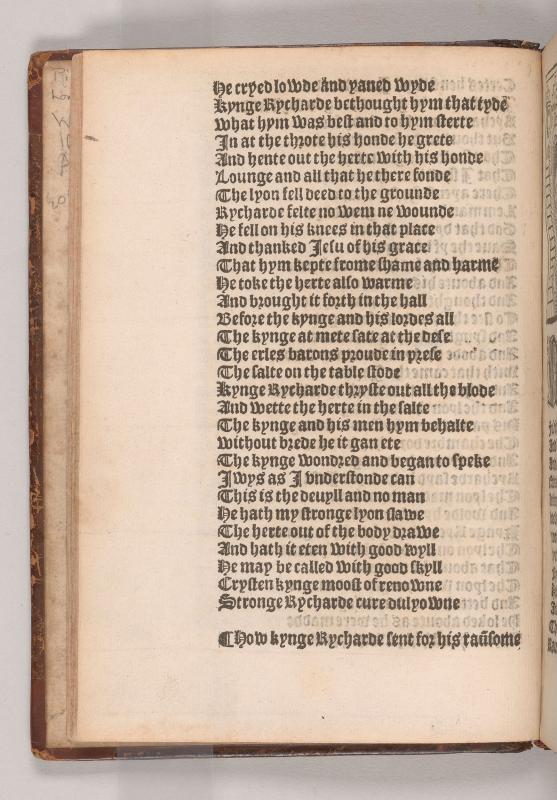 He cryed lowde and yaned wyde
Kynge Rycharde bethought hym that tydē
what hym was best and to hym sterte
In at the throte his honde he grete
And hente out the herte with his honde
Lounge and all that he there fonde
The lyon fell deed to the grounde
Rycharde felte no wem ne wounde
He fell on his knees in that place
And thanked Jesu of his grace
That hym kepte frome shame and harmē
He toke the herte also warme
And brought it forth in the hall
Before the kynge and his lordes all
The kynge at mete sate at the dese
The erles barons proude in prese
The salte on the table stode
Kynge Rycharde thryste out all the blode
And wette the herte in the salte
The kynge and his men hym behalte
without brede he it gan ete
The kynge wondred and began to speke
Iwys as I vnderstonde can
This is the deuyll and no man
He hath my stronge lyon slawe
The herte out of the body drawe
And hath it eten with good wyll
He may be called with good skyll
Crysten kynge moost of renowne
Stronge Rycharde cure dulyowne
¶How kynge Rycharde sent for his raūsome